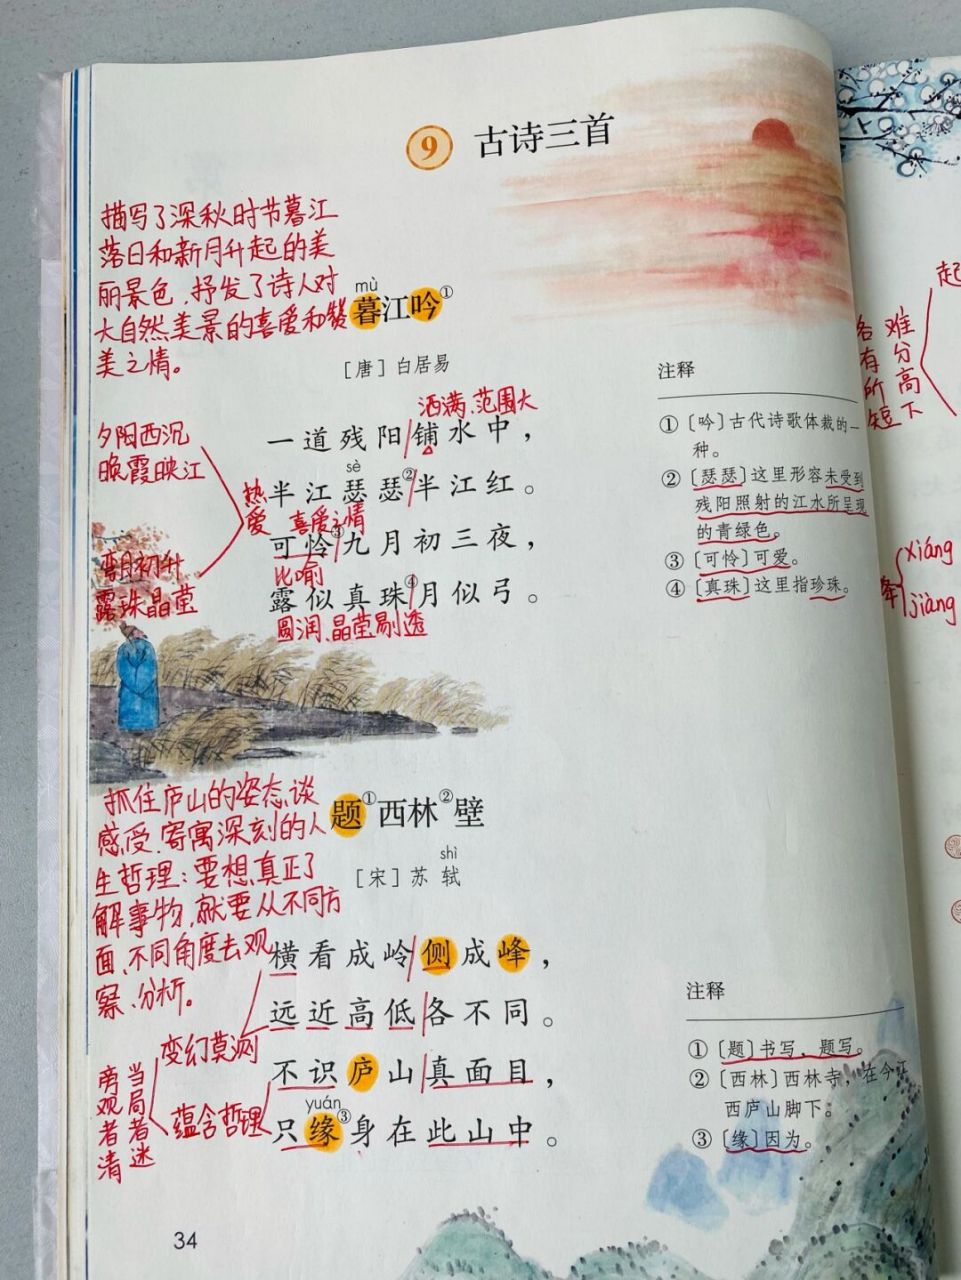 9 古诗三首
描写了深秋时节暮江
落日和新月升起的美
丽景色,抒发了诗人对
大自然美景的喜爱和赞
美之情。
mù
暮江吟①
［唐］白居易
洒满、范围大
一道残阳铺水中，
sè
半江瑟瑟②半江红。
喜爱之情
可怜③九月初三夜，
比喻
露似真珠④月似弓。
圆润、晶莹剔透
夕阳西沉
晚霞映江
热爱
弯月初升
露珠晶莹
注释
①〔吟〕古代诗歌体裁的一
种。
②〔瑟瑟〕这里形容未受到
残阳照射的江水所呈现
的青绿色。
③〔可怜〕可爱。
④〔真珠〕这里指珍珠。
抓住庐山的姿态谈
感受,寄寓深刻的人
生哲理:要想真正了
解事物,就要从不同方
面、不同角度去观
察、分析。
题①西林②壁
shì
［宋］苏轼
横看成岭侧成峰，
远近高低各不同。
不识庐山真面目，
yuán
只缘③身在此山中。
变幻莫测
蕴含哲理
当局者迷
旁观者清
注释
①〔题〕书写、题写。
②〔西林〕西林寺，在今江
西庐山脚下。
③〔缘〕因为。
34
起
难分高下
各有所短
xiáng
降
jiàng